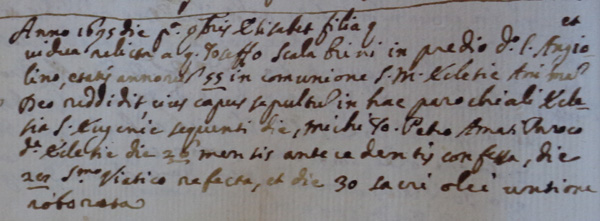 Anno 1695 die p.ᵃ 9bris Elisabet filia q et
vidua relicta a q. Joseffo Scalabrini in predio d.º S. Angio-
lino, etatis annorũ 55 in comunione S. M. Eclesie Animã
Deo reddidit, cuius corpus sepultũ in hac parochiali Ecle-
sia S. Eugenie sequenti die, michi Jo. Petro Amati Paroco
d.ᵉ Eclesie die mensis antecedentis confessa, die
S.mo Viatico refecta, et die 30 sacri olei untione
roborata